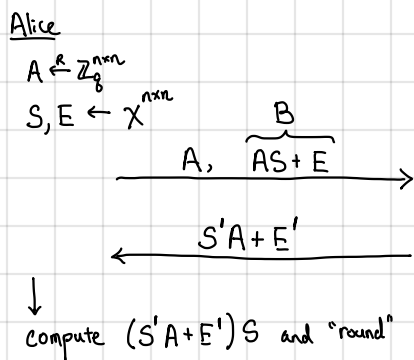 Alice
A ←ᴿ ℤ_q^{n×n}
S, E ← χ^{n×n}
B
A, AS + E
S'A + E'
compute (S'A + E')S and "round"